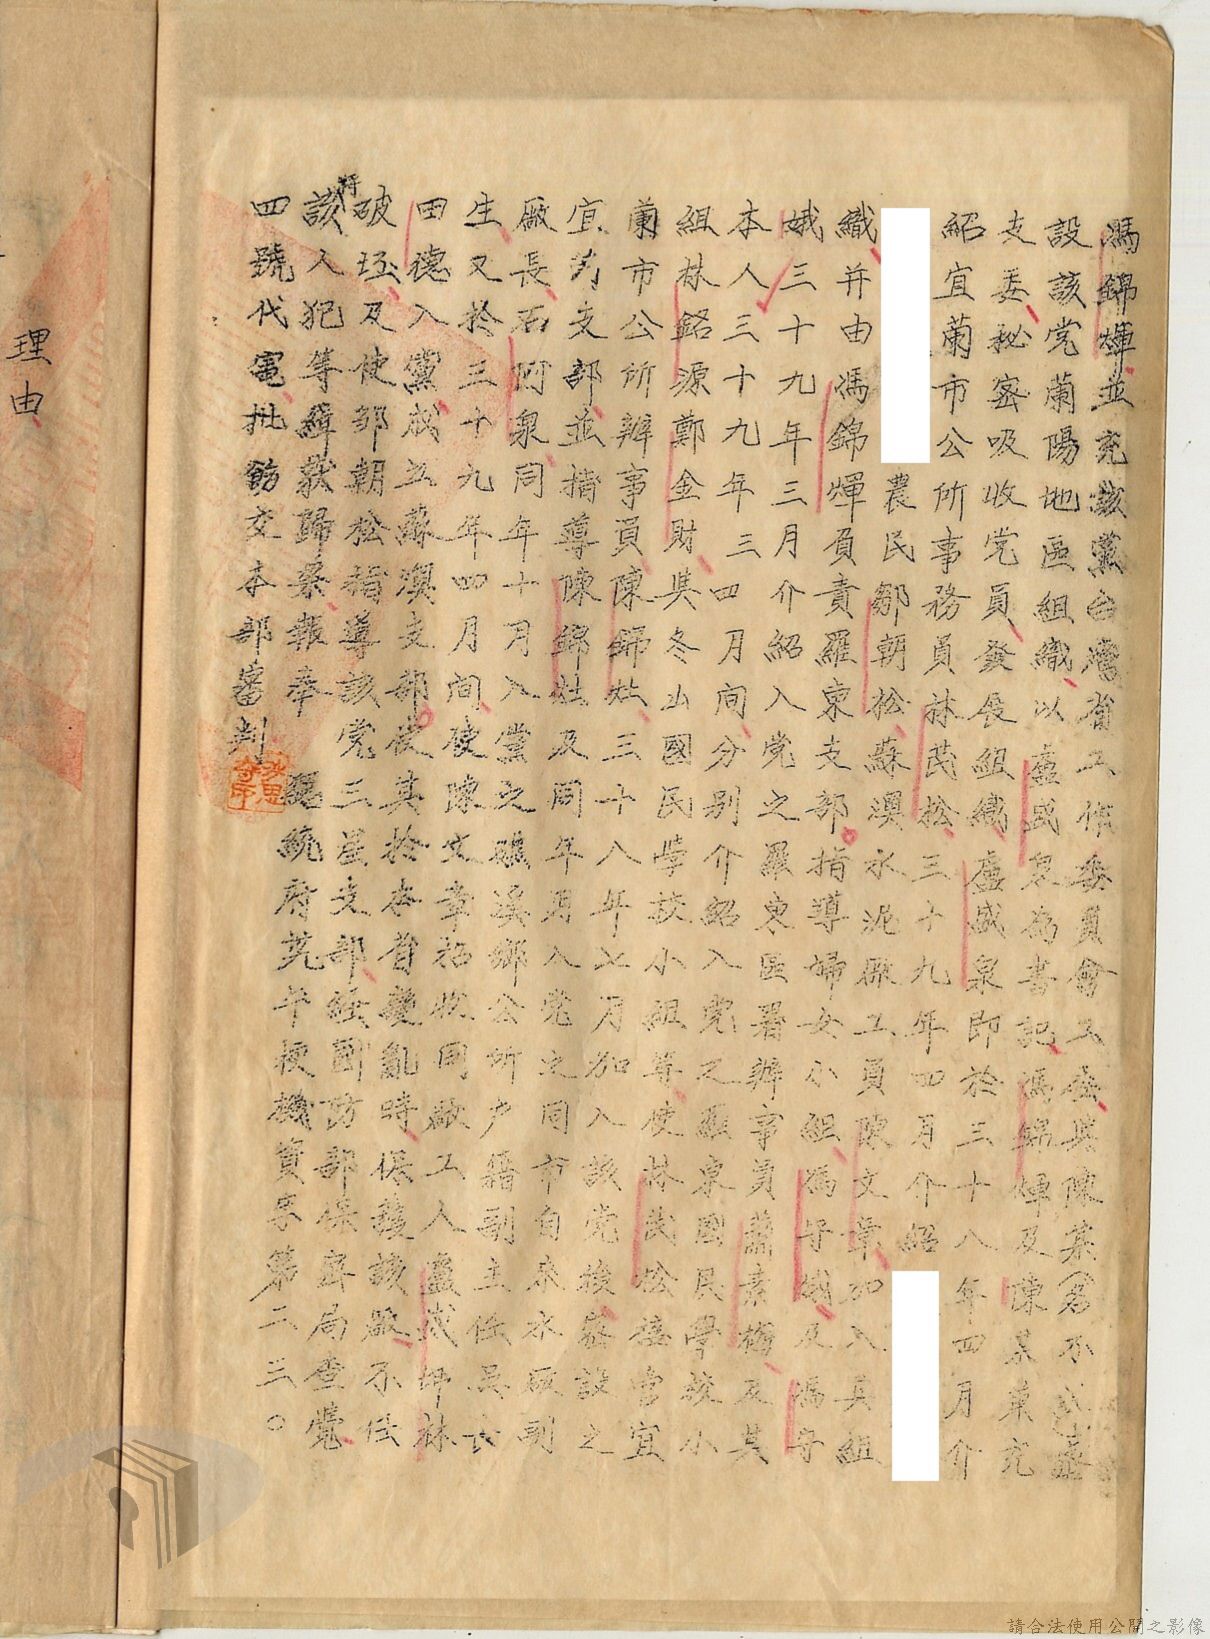 馮錦煇並充該黨台灣省工作委員會工委與陳某(名不
設該党蘭陽地區組織以盧盛泉為書記馮錦煇及陳某東充
支委秘密吸收党員發展組織盧盛泉即於三十八年四月介
紹宜蘭市公所事務員林茂松三十九年四月介紹
農民鄒朝松蘇澳水泥廠工員陳文章加入其組
織并由馮錦煇負責羅東支部指導婦女小組馮守娥及馮守
娥三十九年三月介紹入党之羅東區署辦事員蕭素梅及其
本人三十九年三四月间分别介紹入党之羅東國民學校小
組林銘源鄭金財與冬山國民学校小組等使林茂松接當宜
蘭市公所辦事員陳錦灶三十八年 月加入該党後密設之
宜 支部並指導陳錦灶及同年 月入党之同市自來水廠副
廠長石附泉同年十月入黨之礁溪鄉公所户籍副主任吳長
生又於三十九年四月间使陳文章招收同廠工人盧成 林
田德入黨成立蘇澳支部使其於本省變亂時保護該廠不任
破坯及使鄒朝松指導該党三星支部經國防部保密局查覺
將該人犯等緝獲歸案報奉
總統府芫午梗機資字第二三〇
四號代電批飭交本部審判
理由
請合法使用公開之影像